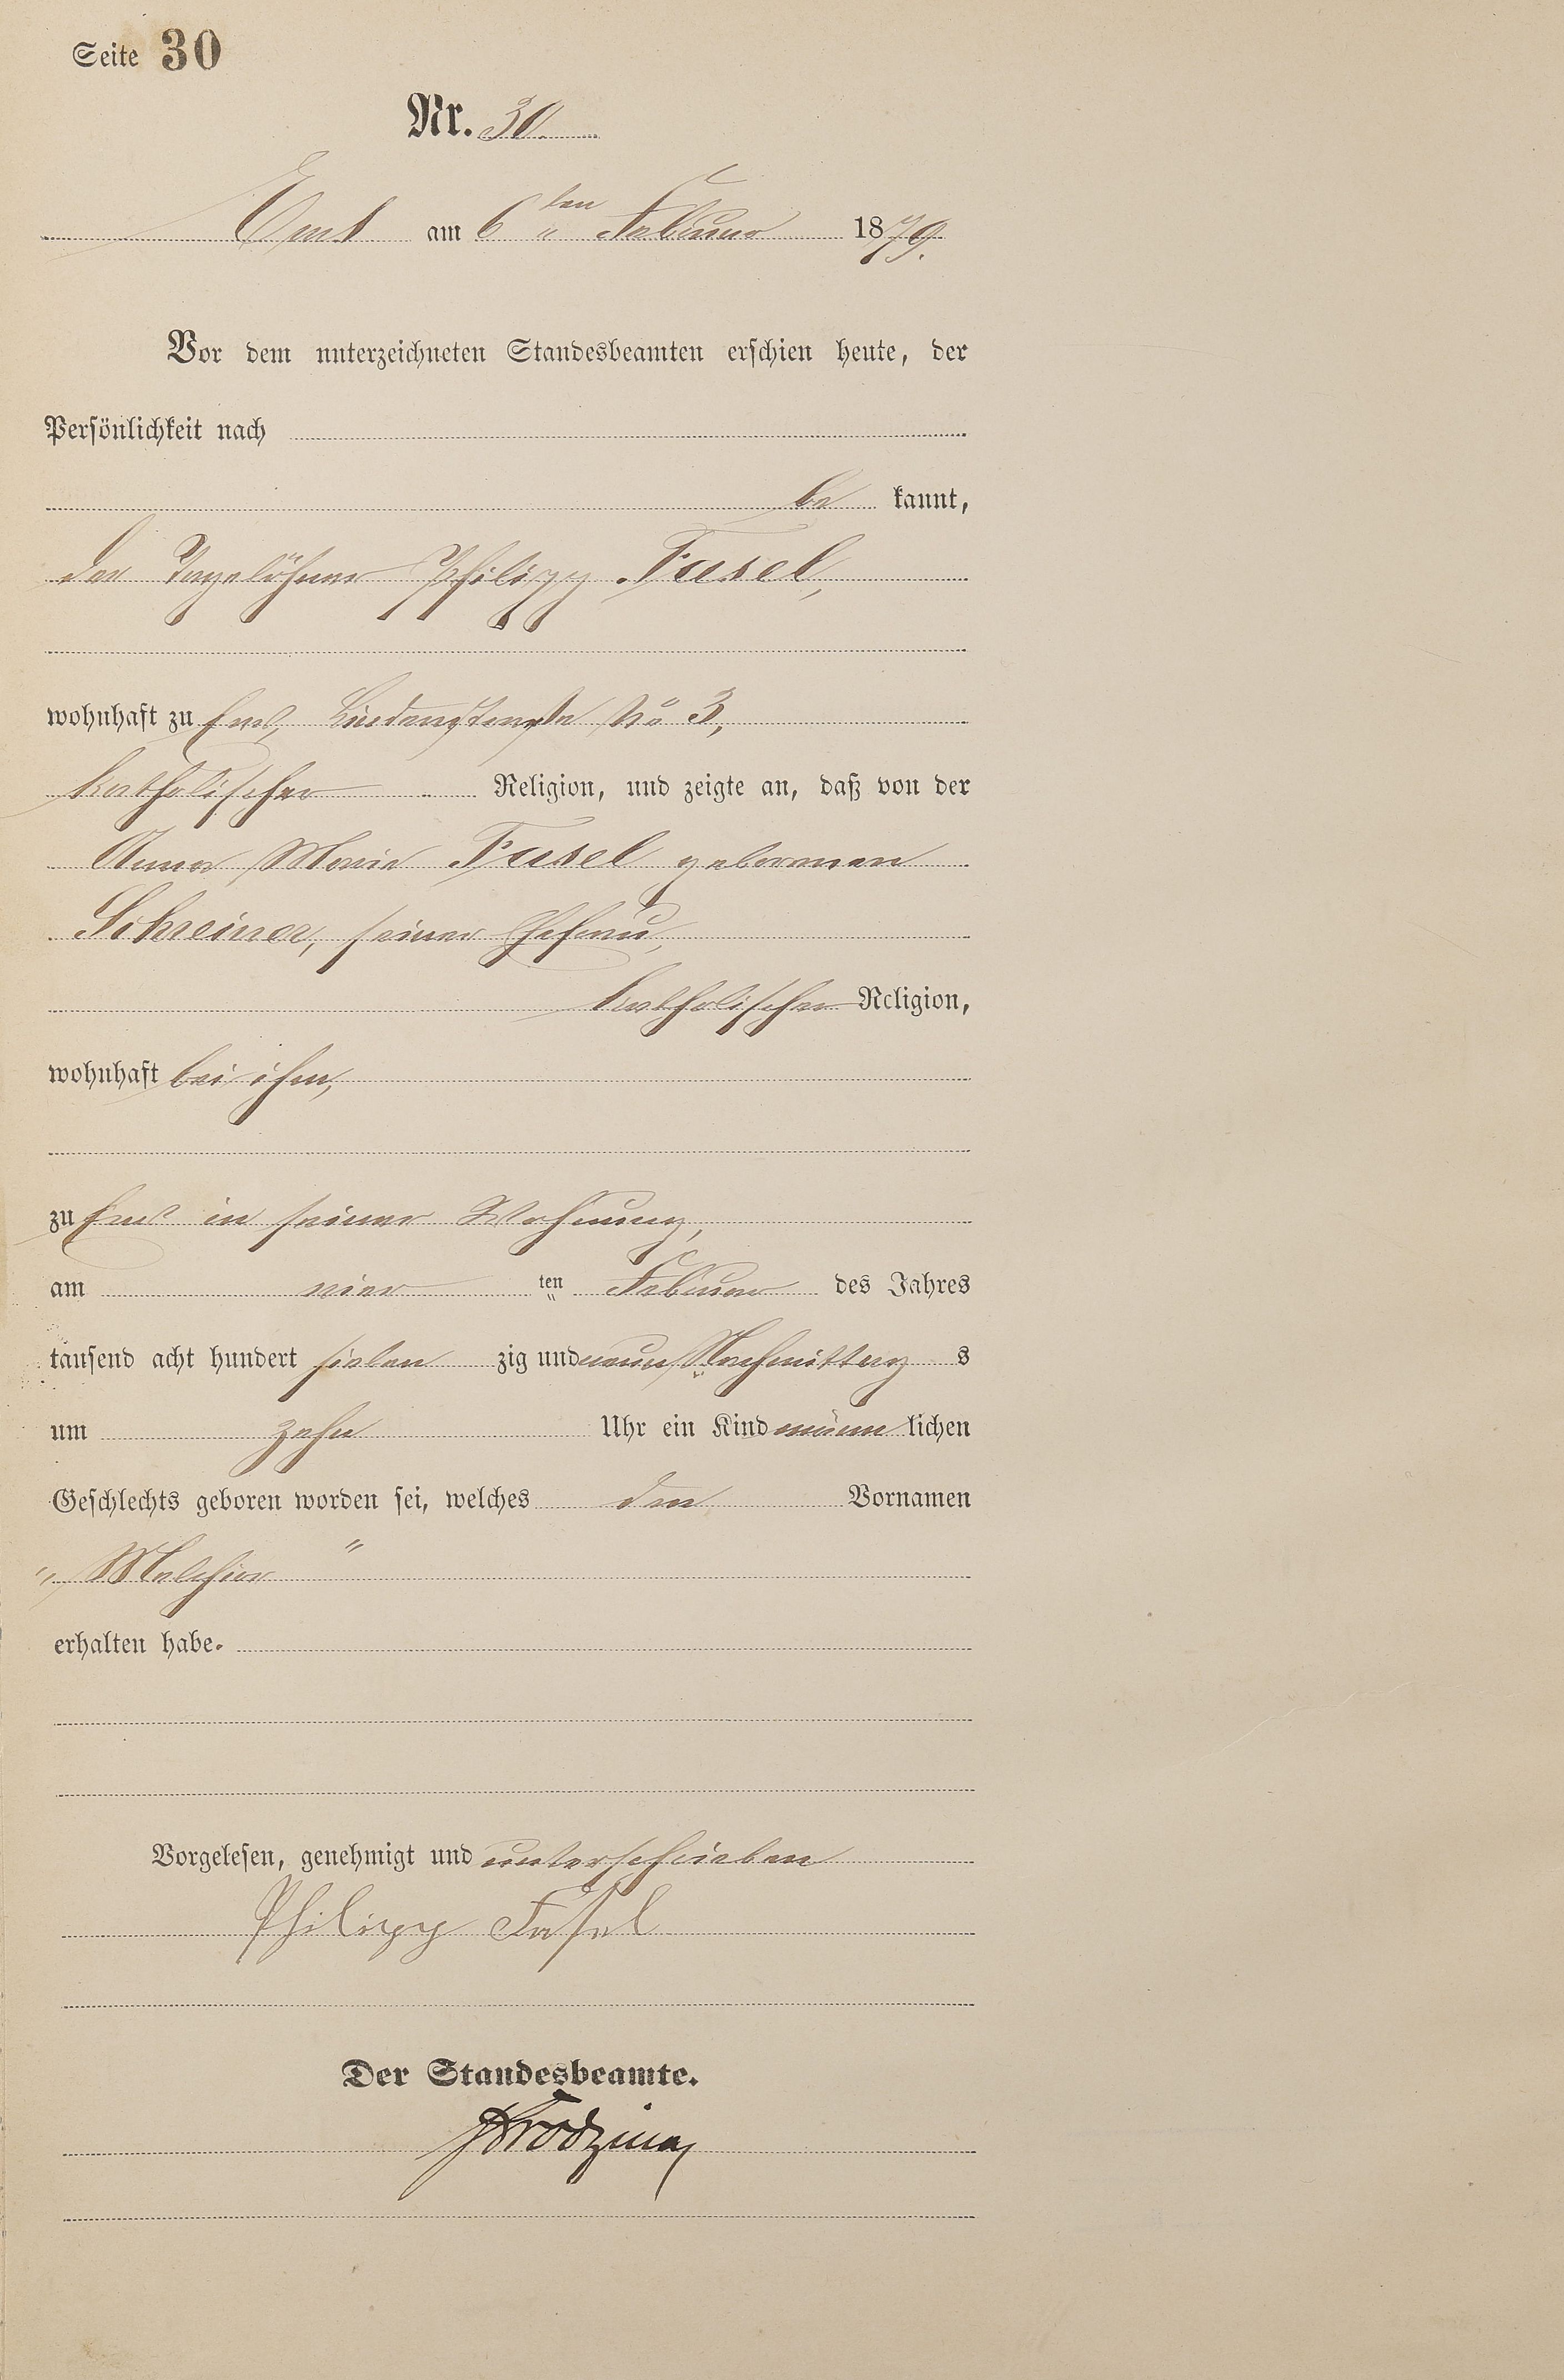 Seite 30
Nr. 30.
Ems am 6ten Februar 1879.
Vor dem unterzeichneten Standesbeamten erschien heute, der
Persönlichkeit nach
be kannt,
der Tagelöhner Philipp Fasel,
wohnhaft zu Ems, Lindenstraße No 3,
katholischer Religion, und zeigte an, daß von der
Anna Maria Fasel geborenen
Schreiner, seiner Ehefrau,
katholischer Religion,
wohnhaft bei ihm,
zu Ems in seiner Wohnung,
am vier ten Februar des Jahres
tausend acht hundert sieben zig und neun Nachmittag s
um zehn Uhr ein Kind männ lichen
Geschlechts geboren worden sei, welches den Vornamen
„Melchior"
erhalten habe.
Vorgelesen, genehmigt und unterschrieben
Philipp Fasel
Der Standesbeamte.